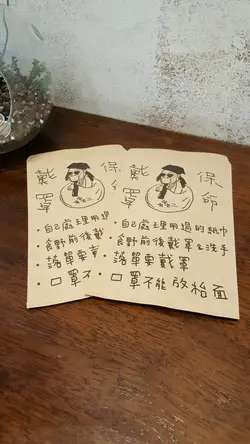 戴 保
罩
・自己處理用過
・食野前後戴
・落單要
・口罩不
戴 保
罩 命
・自己處理用過的紙巾
・食野前後戴罩&洗手
・落單要戴罩
・口罩不能放枱面